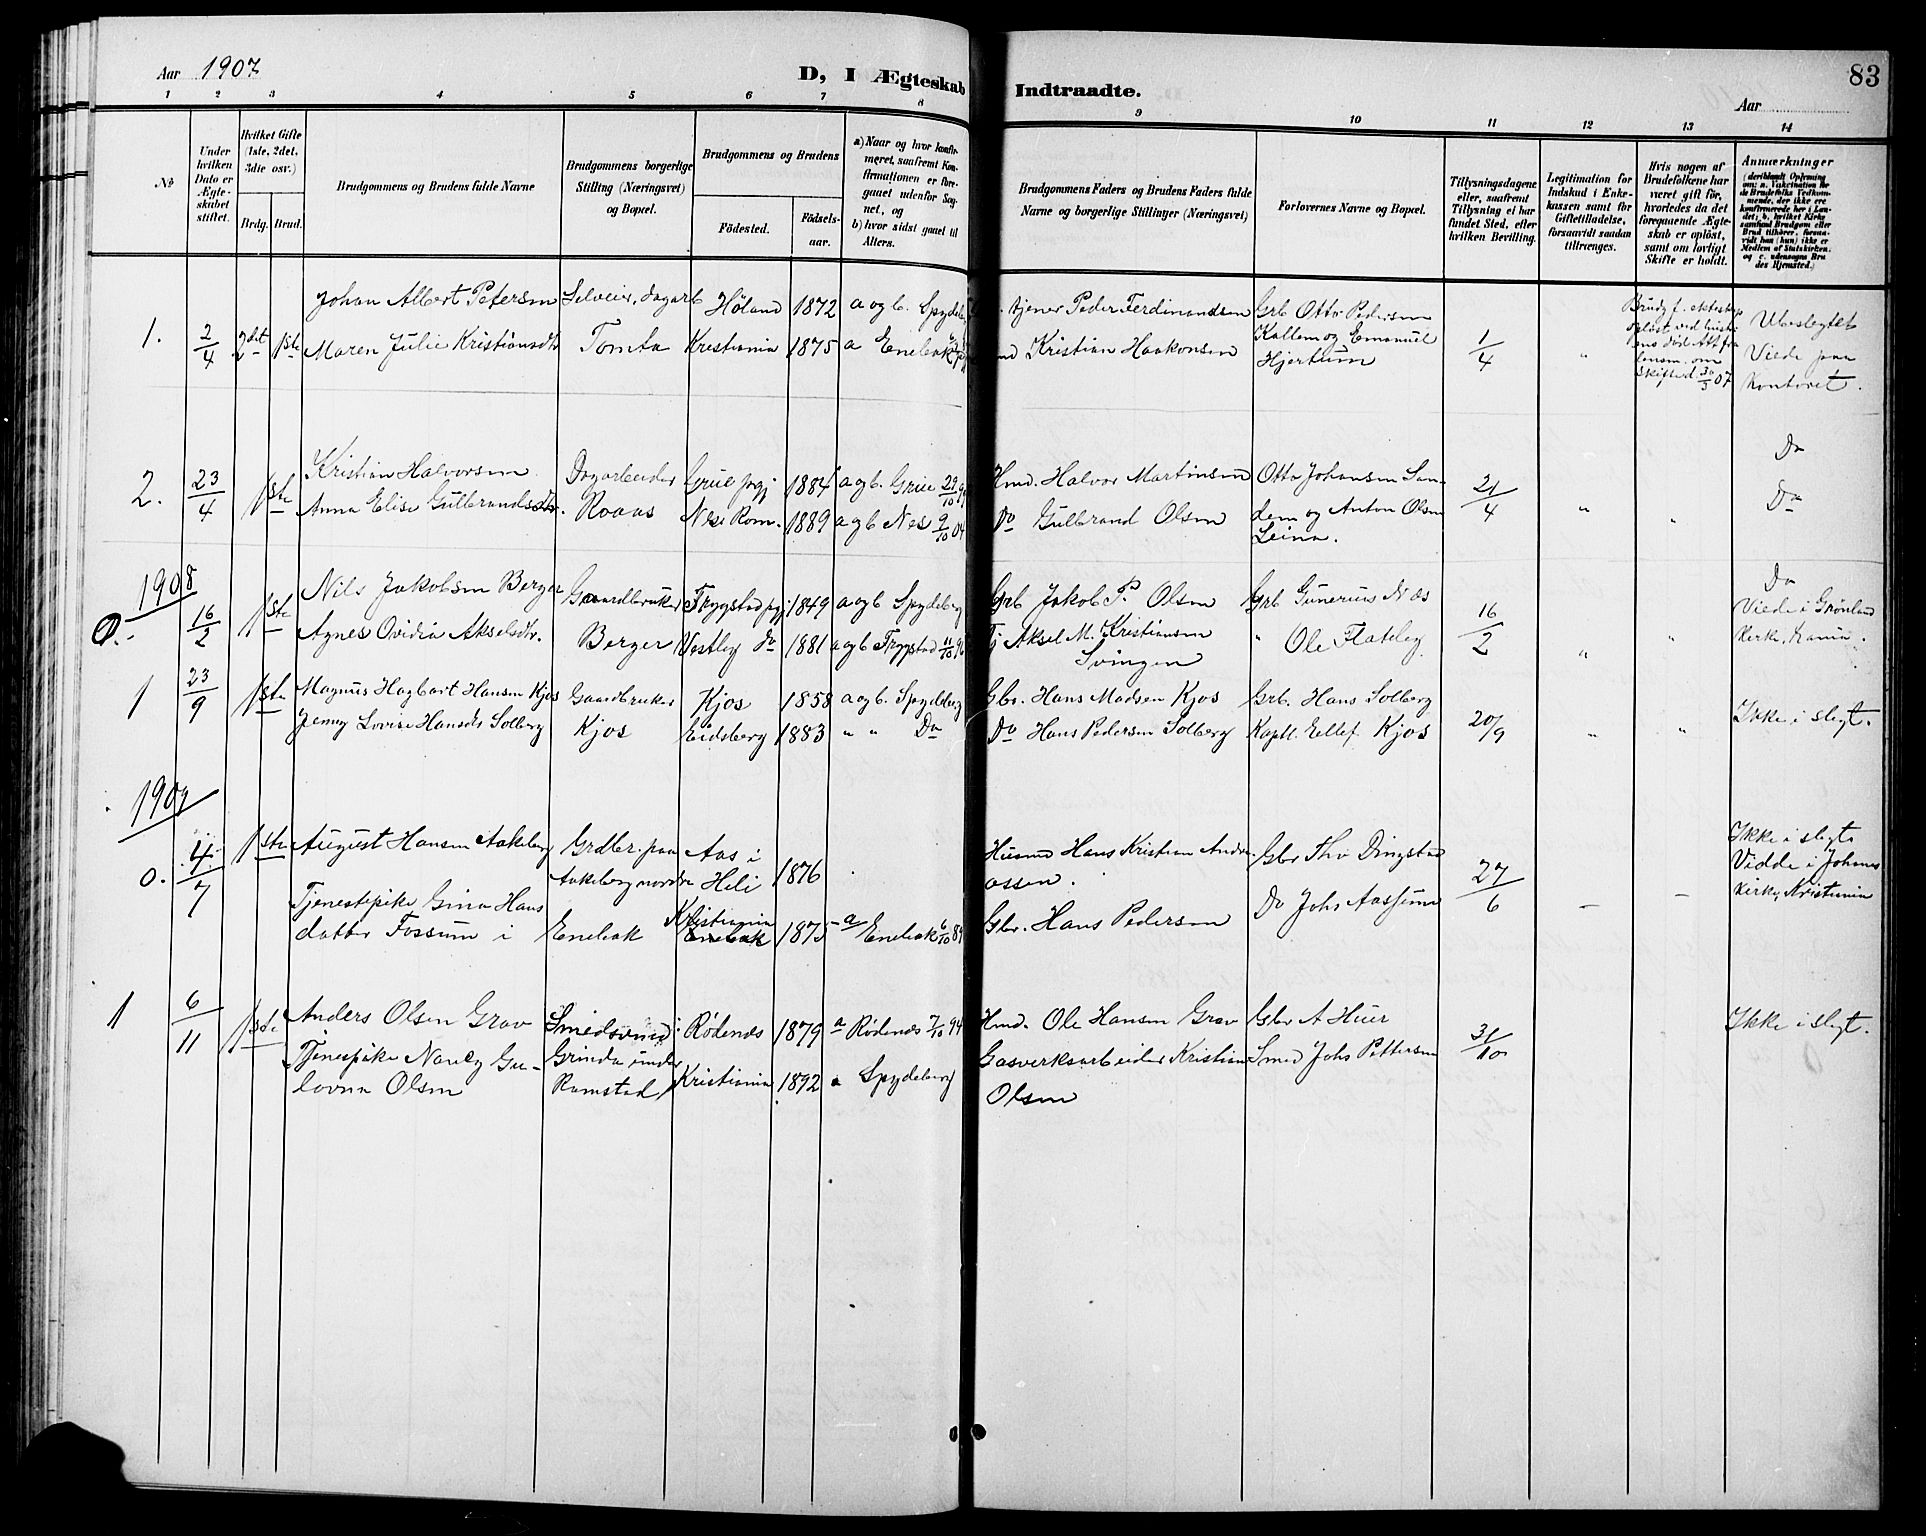 Aar 1907
D, I Ægteskab Indtraadte.
83
Aar
1 2 3 4 5 6 7 8 9 10 11 12 13 14
No
Under hvilken Dato er Ægteskabet stiftet.
Hvilket Gifte (1ste, 2det, 3die osv.)
Brdg. Brud.
Brudgommens og Brudens fulde Navne
Brudgommens borgerlige Stilling (Næringsvei) og Bopæl.
Brudgommens og Brudens
Födested.
Födselsaar.
a) Naar og hvor konfirmeret, saafremt Konfirmationen er foregaaet udenfor Sognet, og
b) hvor sidst gaaet til Alters.
Brudgommens Faders og Brudens Faders fulde Navne og borgerlige Stillinger (Næringsvei)
Forlovernes Navne og Bopæl.
Tillysningsdagene eller, saafremt Tillysning ei har fundet Sted, efter hvilken Bevilling.
Legitimation for Indskud i Enkekassen samt for Giftetilladelse, forsaavidt saadan tiltrænges.
Hvis nogen af Brudefolkene har været gift før, hvorledes da det foregaaende Ægteskab er oplöst, samt om lovligt Skifte er holdt.
Anmærkninger (deriblandt Oplysning om: a. Vakcination for de Brudefolks Vedkommende, der ikke ere konfirmerede her i Landet; b. hvilket Kirkesamfund Brudgom eller Brud tilhörer, forsaavidt han (hun) ikke er Medlem af Statskirken, og c. udensogns Brudes Hjemsted.)
1. 2/4 2det 1ste Johan Albert Petersen Selveier, dagarb Høland 1872 a og b. Spydeb tjener Peder Ferdinandsen Grb Otto Pedersen
Maren Julie Kristiansdtr Tomta Kristiania 1875 a Enebak Kristian Haakonsen Kallem og Emanuel Hjertum 1/4 "
Brudg f. ektesk opløst ved hustruens død. Att fra lensm. om Skifte d. 30/3 07
Ubeslegtet
Viede paa
Kontoret.
2. 23/4 1ste Kristian Halvorsen Dagarbeider Grue pgj 1884 a og b. Grue 29/10 99 Hmd. Halvor Martinsen Otto Johansen San- 21/4 " " Do
Anna Elise Gulbrandsdtr. Roaas Nes Rom. 1889 a og b Nes 9/10 04 Do Gulbrand Olsen dem og Anton Olsen Leina. Do
1908
0. 16/2 1ste Nils Jakobsen Berger Gaardbruker Trygstad pgj. 1849 a og b Spydeberg Grb Jakob P. Olsen Grb Gunerius Næs 16/2 " " Do
Agnes Ovidia Akselsdtr. Berger Vestby Do 1881 a og b Trygstad 11/10 96 Tj Aksel M. Kristiansen Svingen " Ole Flateby
Viede i Grønland
Kirke, Kania.
1 23/9 1ste Magnus Hagbart Hansen Kjos Gaardbruker Kjos 1858 a og b. Spydeberg Gbr. Hans Madsen Kjos Grb. Hans Solberg 20/9 " " Ikke i slegt.
Jenny Lovise Hansdtr Solberg Kjos Eidsberg 1883 " " Do Do Hans Pedersen Solberg Kaptl. Ellef Kjos
1909
0. 4/7 1ste August Hansen Aakeberg Grdbr. paa Aakeberg nordre Aas i Heli 1876 Husmd Hans Kristian Andreassen. Gbr Thv Dingstad 27/6 – – Ikke i slegt
Tjenestepike Gina Hansdatter Fossum i Enebak Kristiania Enebak 1875 – a Enebak 6/10 89 Gbr. Hans Pedersen Do Johs Aassum
Vidde i Johanes
Kirke, Kristiania
1 6/11 1ste Anders Olsen Grav Smedsvend i Rødenes 1879 a Rødenes 7/10 94 Hmd. Ole Hansen Grav Gbr A Huer 31/10 Ikke i slegt.
Tjenespike Nancy Gulovna Olsen Grinda under Ramstad Kristiania 1892 a Spydeberg Gasverksarbeider Kristian Olsen Smed Johs Pettersen